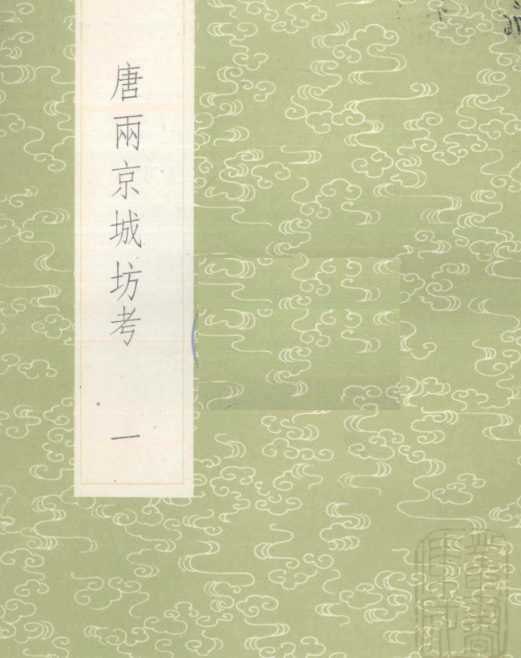 唐兩京城坊考
一